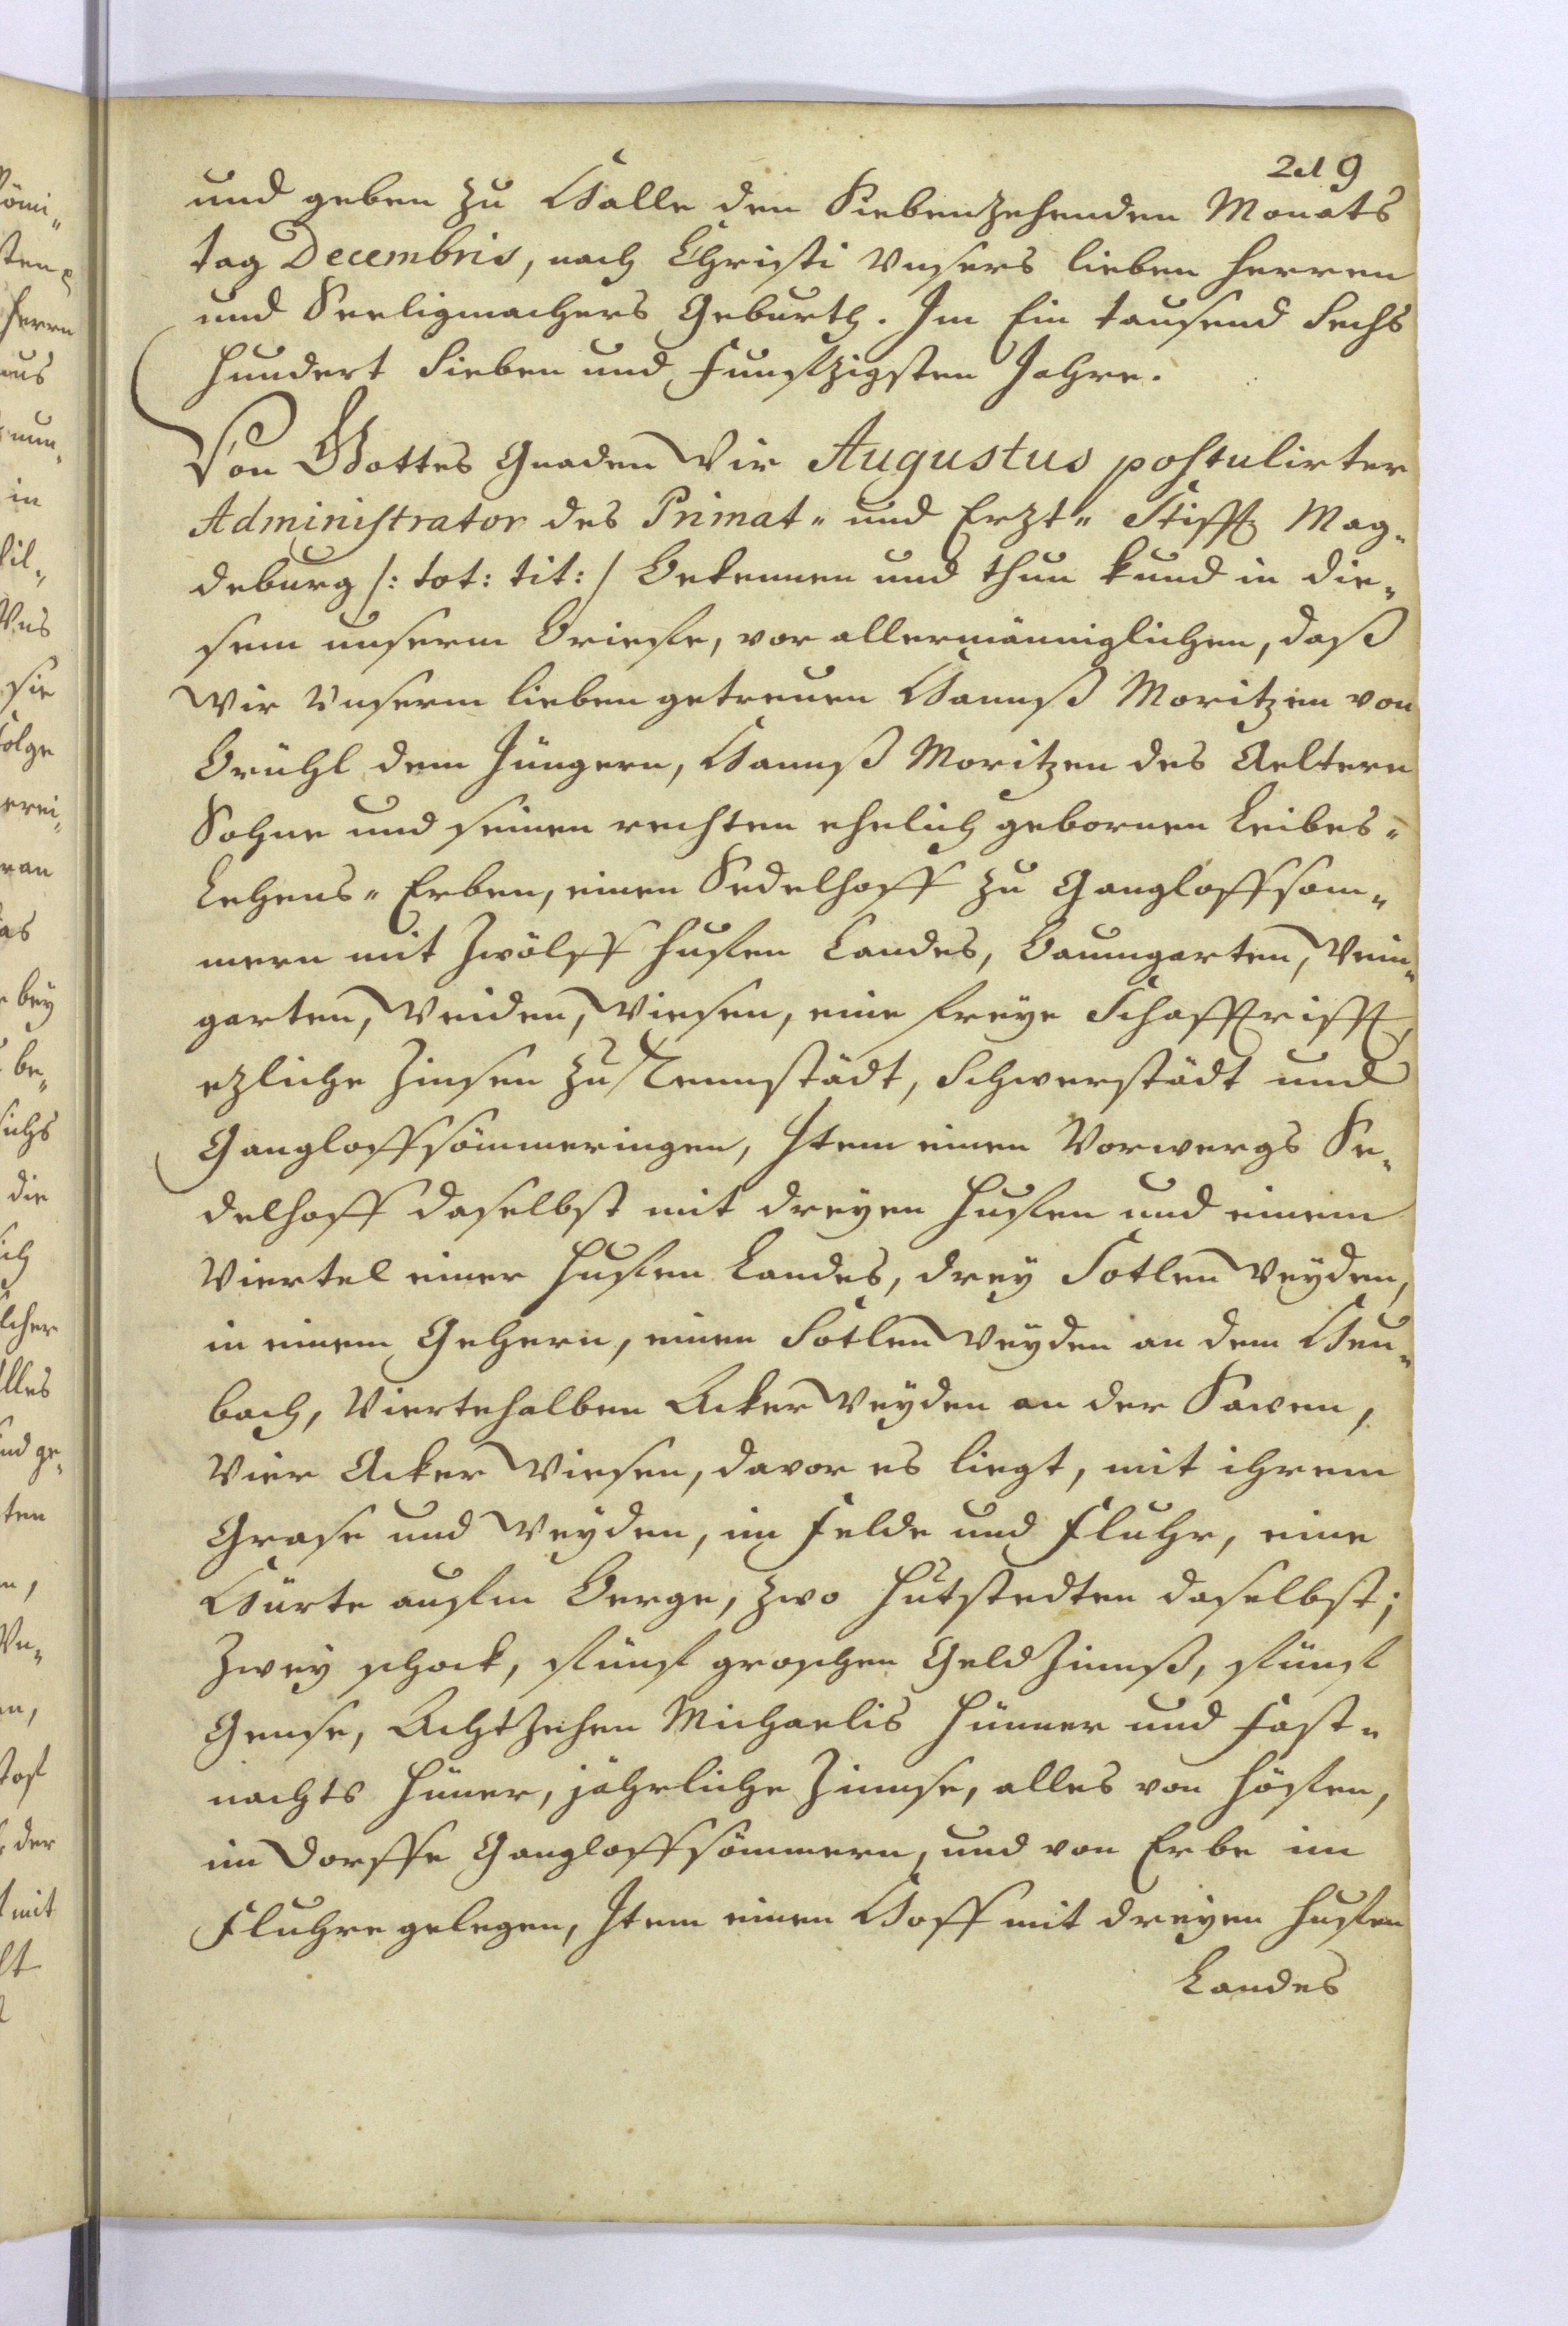 219
und geben zu Halle den Siebenzehenden Monats
tag Decembris, nach Christi Unsers lieben Herren
und Seeligmachers Geburth. Im Ein tausend Sechs
hundert Sieben und Funfzigsten Jahre.
Von Gottes Gnaden Wir Augustus postulirter
Administrator des Primat- und Erzt- Stifft Mag-
deburg /: tot: tit: / Bekennen und thun kund in die-
sem unserm Briefe, vor allermänniglichen, daß
Wir Unserm lieben getreuen Hannß Moritzen von
Brühl dem Jüngern, Hannß Moritzen des Aeltern
Sohne und seinen rechten ehelich gebornen Leibes-
Lehens- Erben, einen Sedelhoff zu Gangloffsöm-
mern mit Zwölff Hufen Landes, Baumgarten, Wein-
garten, Weiden, Wiesen, eine freye Schafftrifft,
ezliche Zinsen zu Tennstädt, Schwerstädt und
Gangloffsömmeringen, Item einen Vorwergs Se-
delhoff daselbst mit dreyen Hufen und einem
Viertel einer Hufen Landes, drey Sotlen Weyden,
in einem Gehern, einen Sotlen Weyden an dem
bach, Viertehalben Acker Weyden an der
Vier Acker Wiesen, davor es liegt, mit ihrem
Grase und Weyden, im Felde und Fluhr, eine
aufm Berge, zwo Hutstedten daselbst;
Zwey schock, fünf groschen Geld Zinnß, fünf
Gense, Achtzehen Michaelis Hünner und Fast-
nachts Hüner, jährliche Zinnse, alles von Höfen,
im Dorffe Gangloffsömmern, und von Erbe im
Fluhre gelegen, Item einen Hoff mit dreyen Hufen
Landes